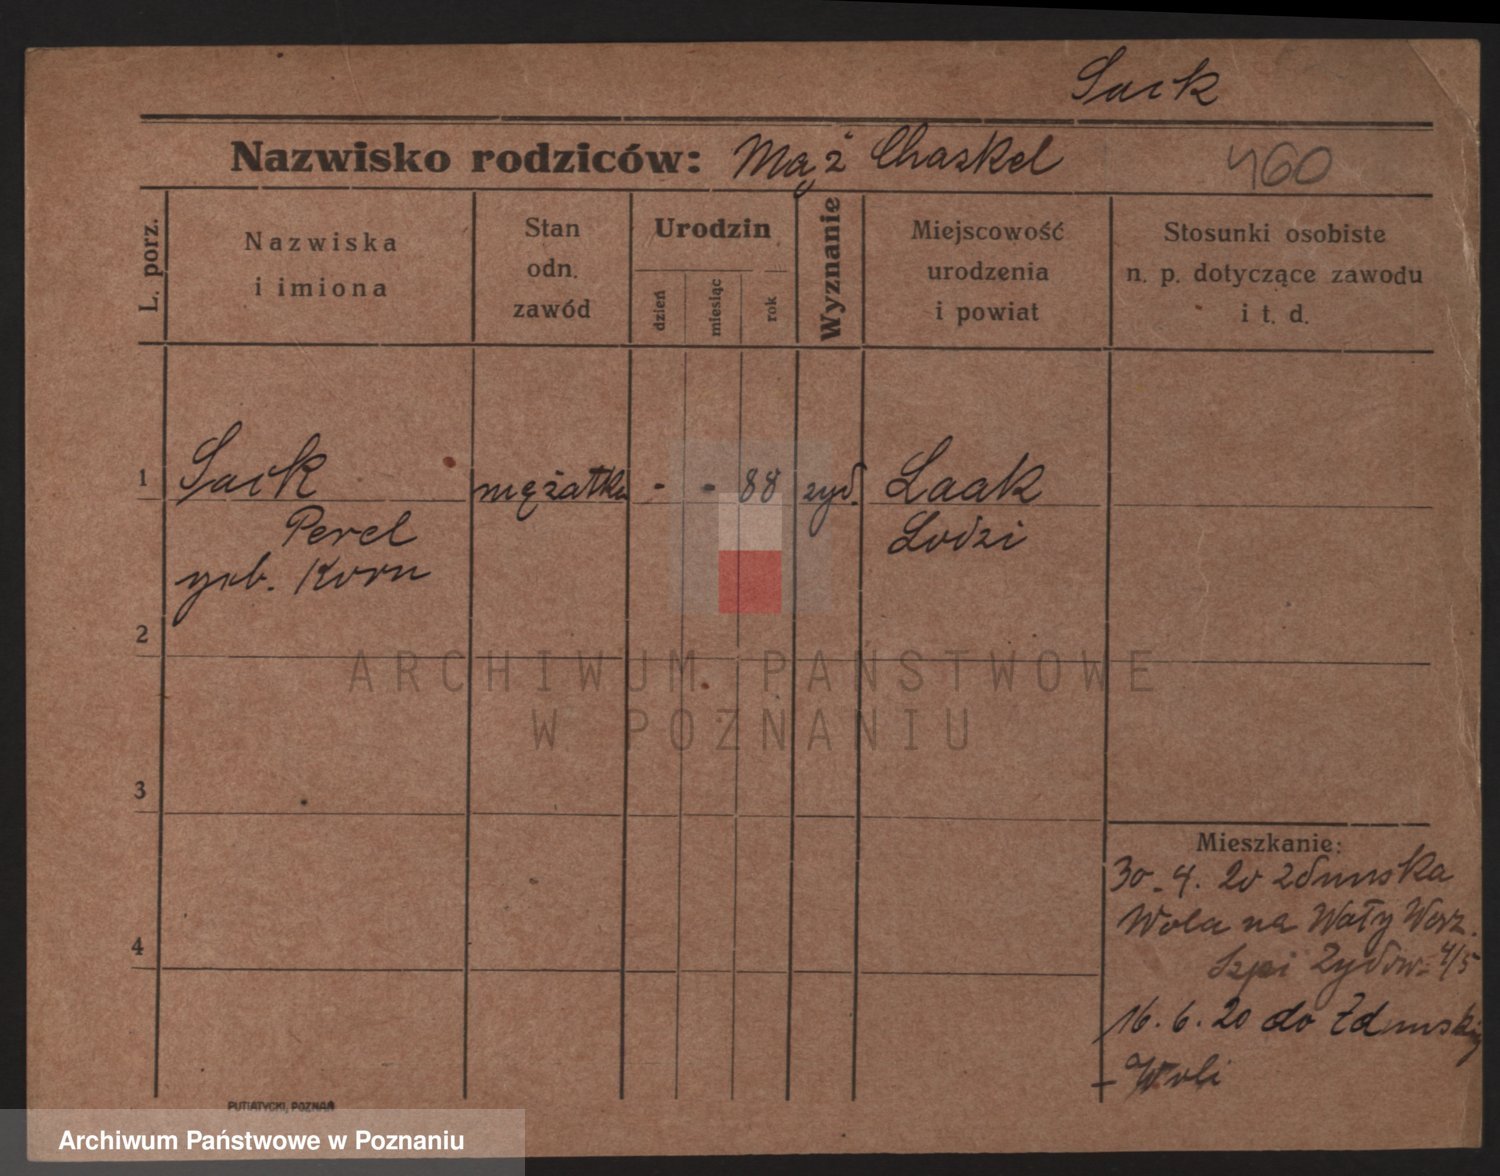 Sack
Nazwisko rodziców: Mąż Chaskel
460
L. porz.
Nazwiska
i imiona
Stan
odn.
zawód
Urodzin
dzień
miesiąc
rok
Wyznanie
Miejscowość
urodzenia
i powiat
Stosunki osobiste
n. p. dotyczące zawodu
i t. d.
1 Sack mężatka - - 88 żyd. Laak
Perel Lodzi
geb. Korn
2
3
4
Mieszkanie:
30. 4. 20 Zdunska
Wola na Wały
Szpi Żydow. 4/5
16. 6. 20 do Zdunskiej
Woli
PUTIATYCKI, POZNAŃ
ARCHIWUM PAŃSTWOWE
W POZNANIU
Archiwum Państwowe w Poznaniu